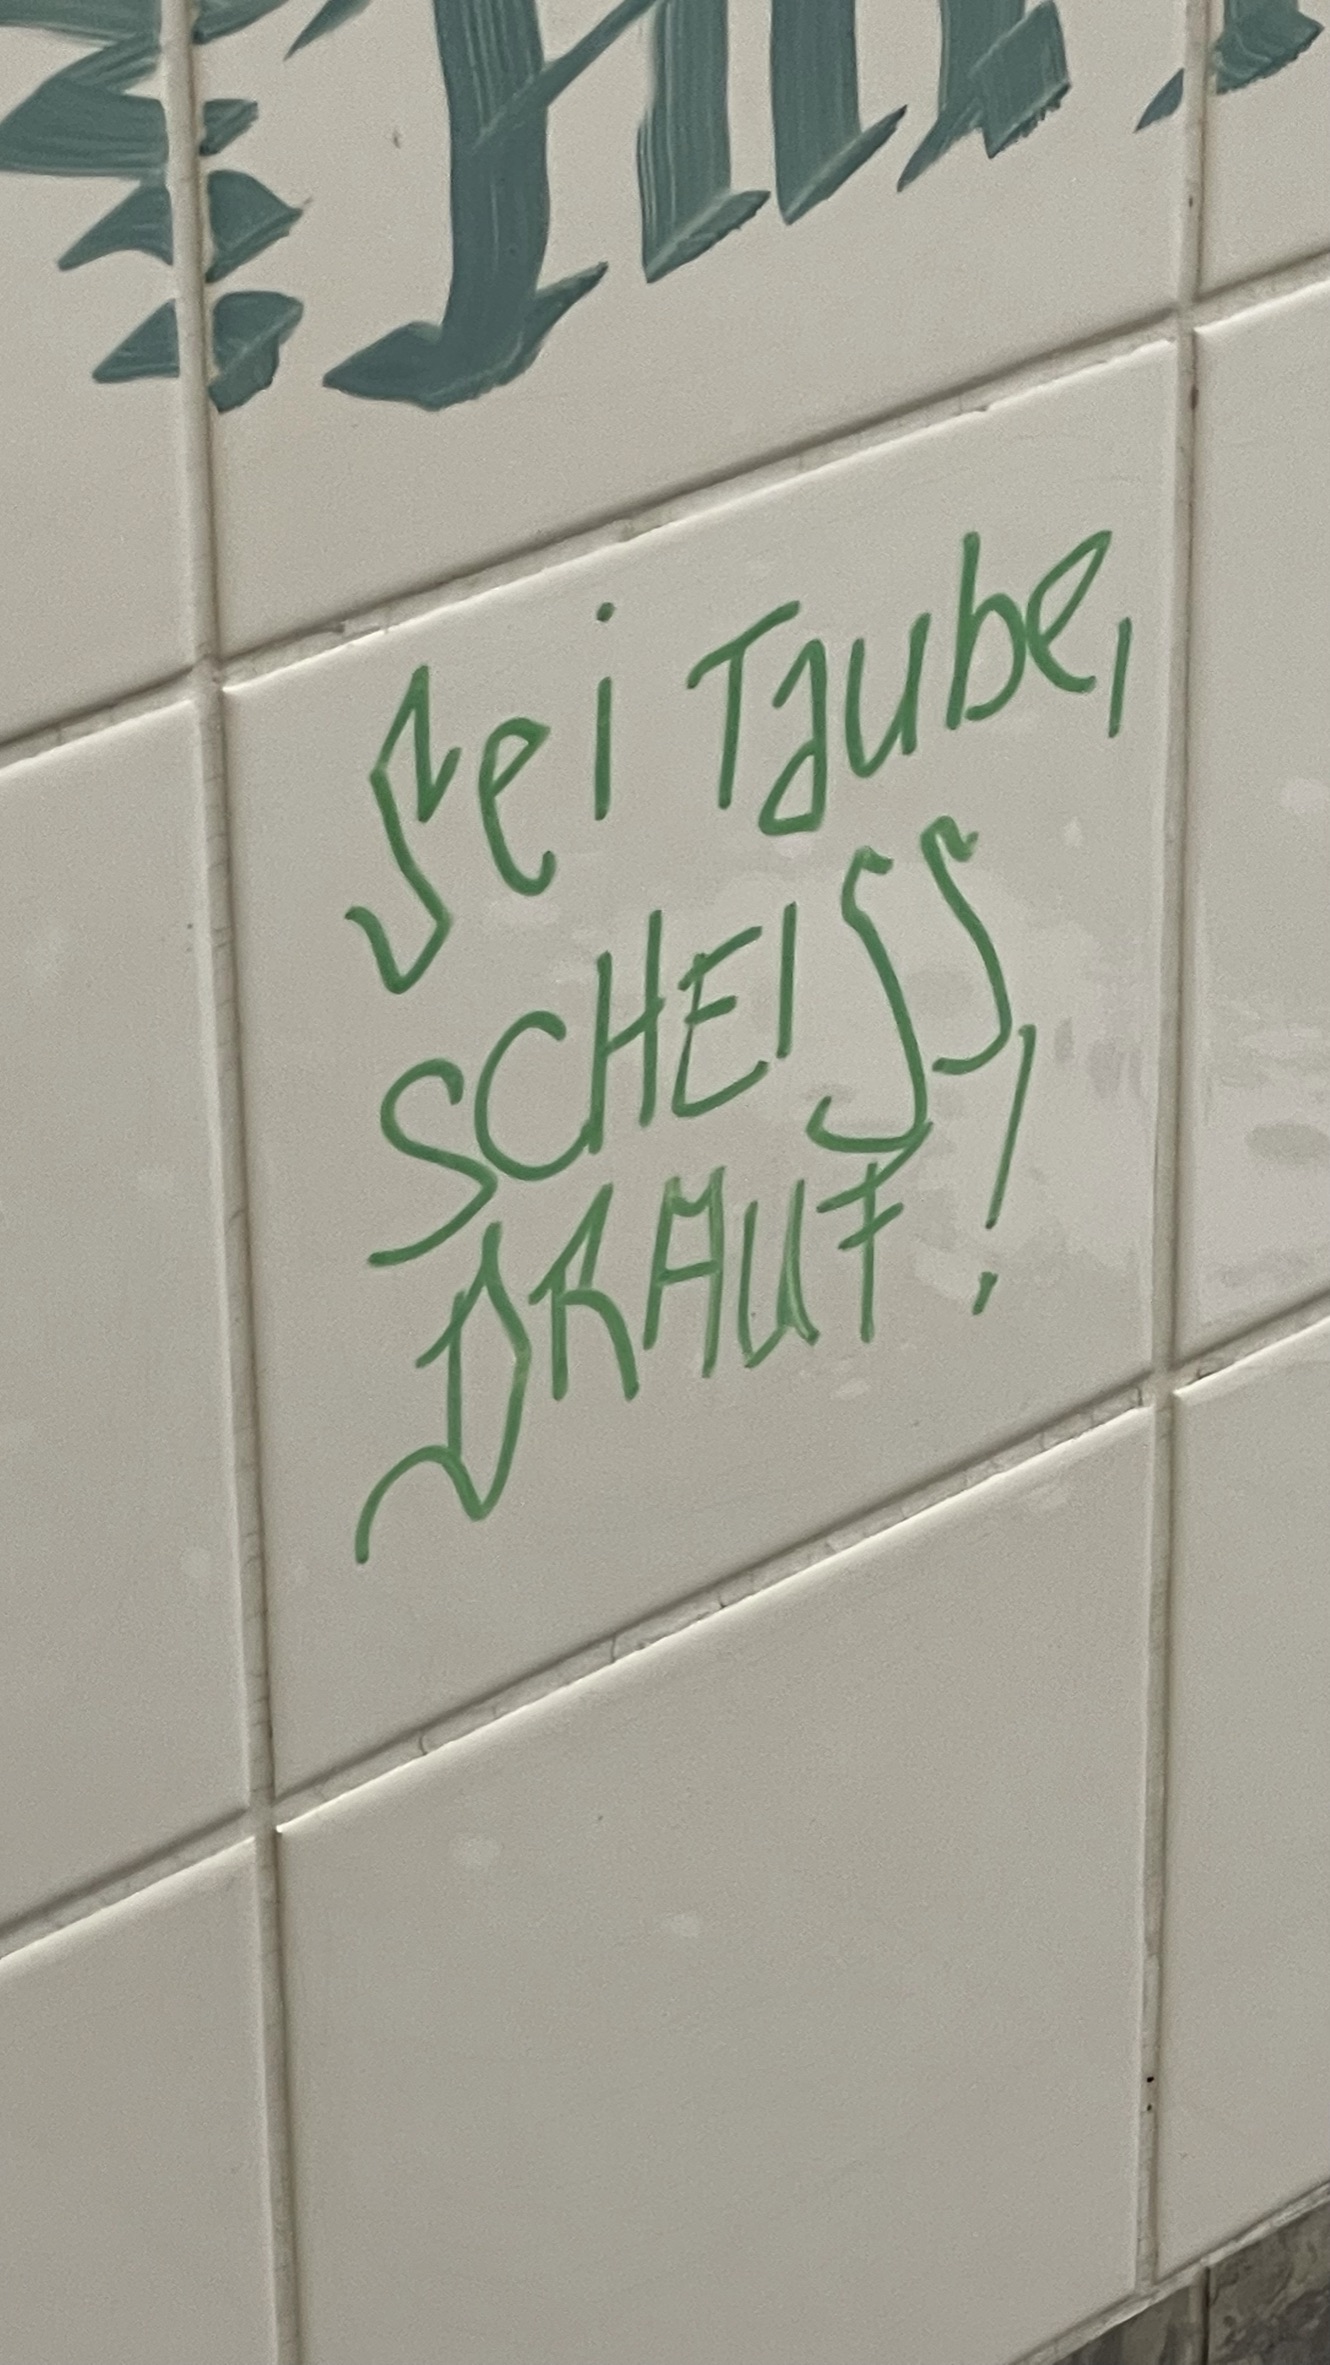 Sei Taube,
SCHEISS
DRAUF!